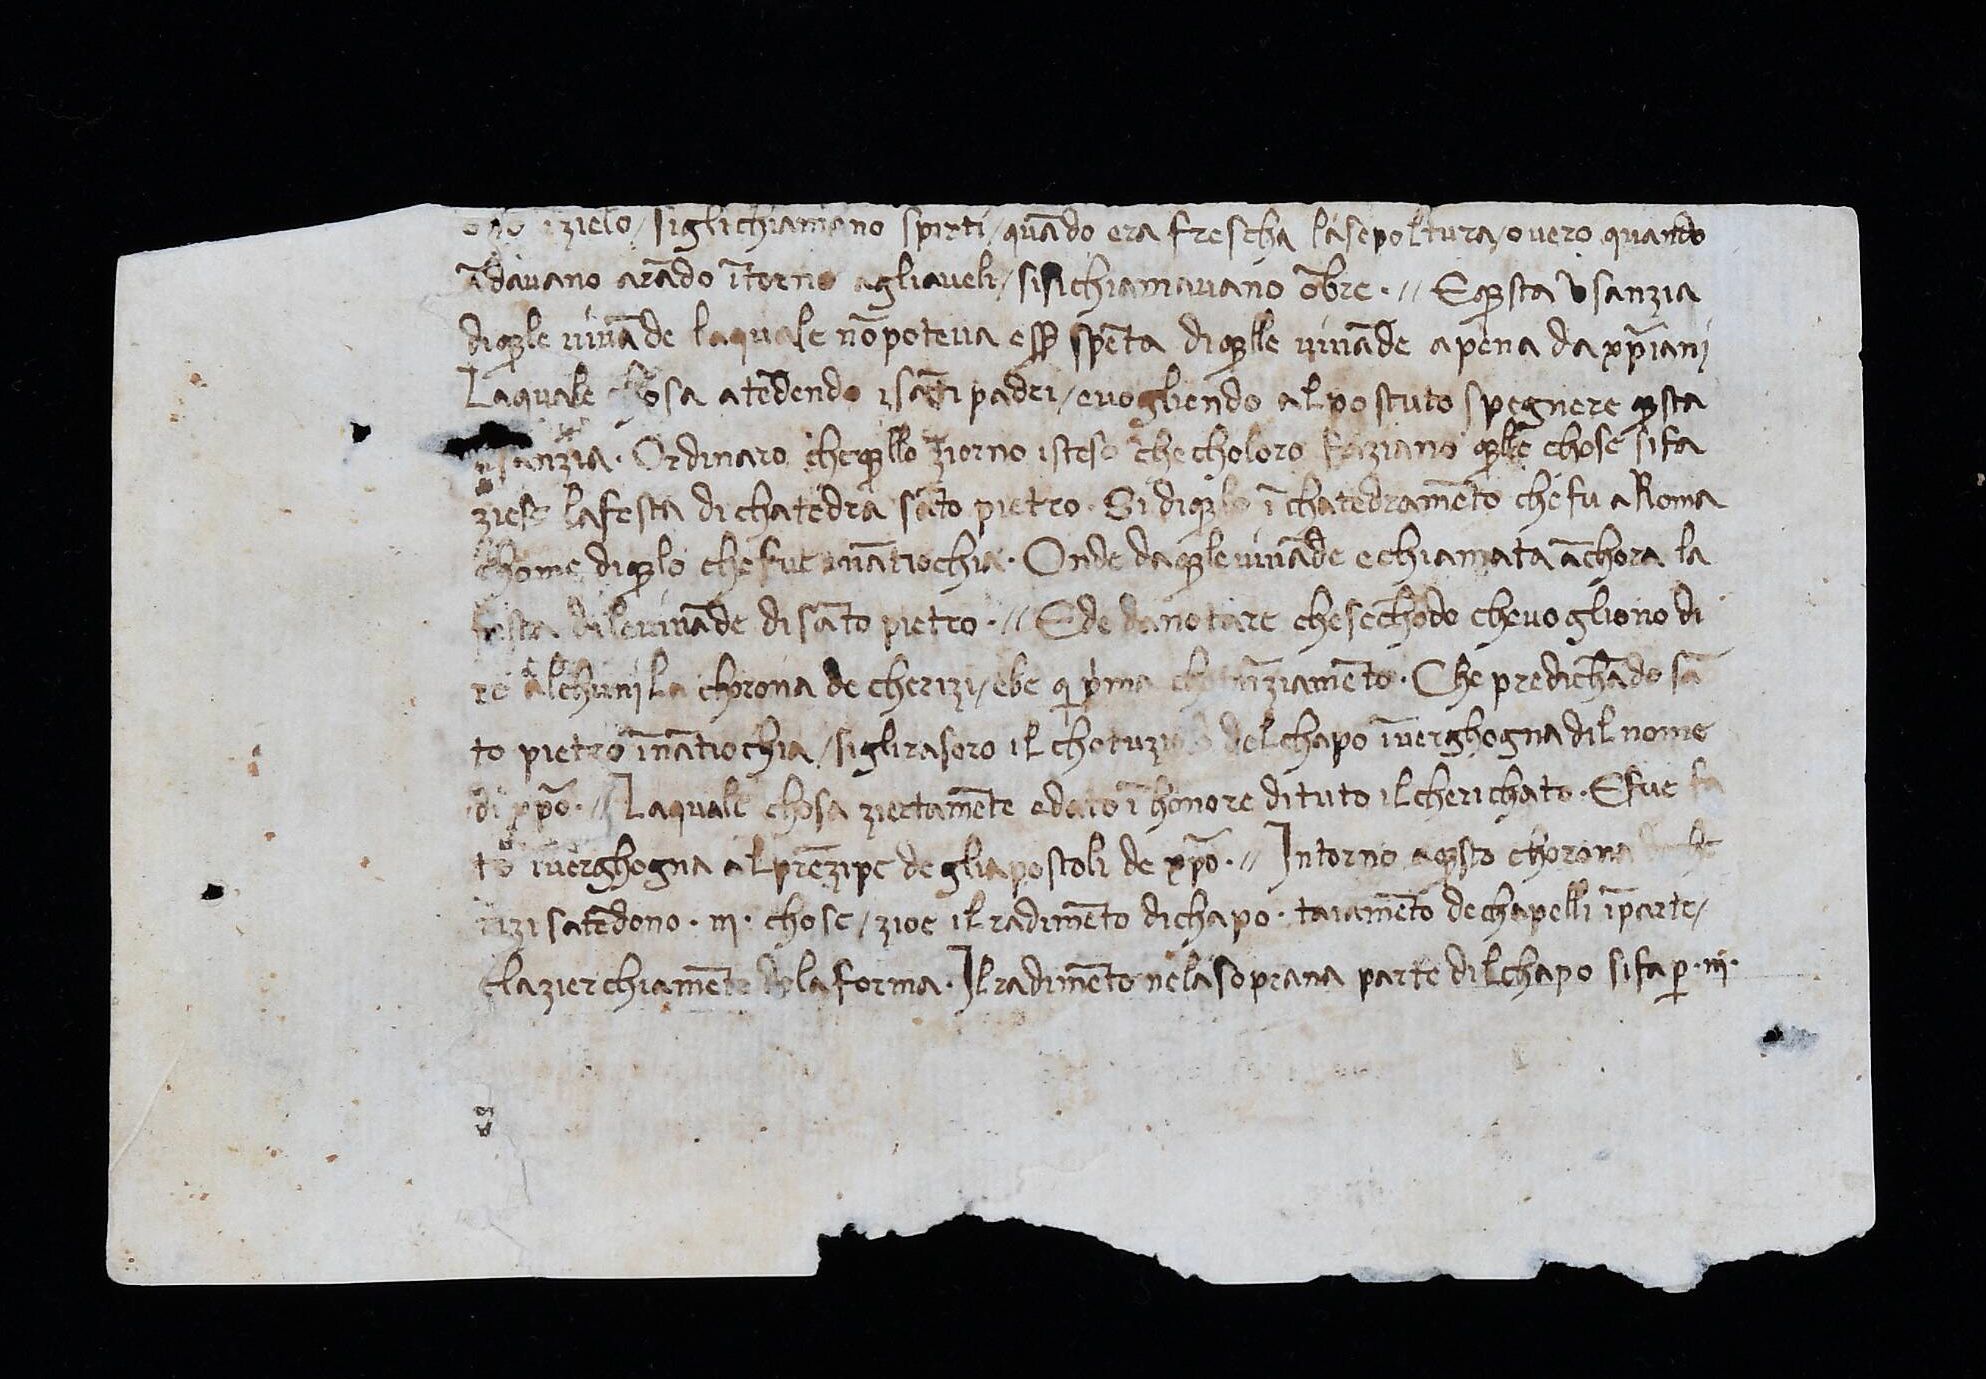 izielo / siglichiamano spirti / quādo era frescha lasepoltura / overo quando
ādavano arādo ītorno agliaveli / sisichiamavano ōbre · // Eq̄sta vsanzia
diq̄le vivāde laquale nōpoteva eēr spēta diq̄lle vivāde apena da xp̄iani
Laquale chosa atēdendo isāti padri / evogliendo alpostuto spegnere q̄sta
usanzia · Ordinaro cheq̄llo ziorno isteso checholoro faziano q̄lle chose sifa
ziese lafesta dichatedra sāto pietro · Si diq̄lo īchatedramēto chefu aRoma
chome diq̄lo chefue inātiochia · Onde daq̄le vivāde echiamata āchora la
festa dilevivāde disāto pietro · // Ede danotare chesechōdo chevogliono di
re alchuni La chorona de cherizi / ebe q̄ p̄ma chomīziamēto · Che predichādo sā
to pietro īnātiochia / siglirasero il chotuzolo delchapo īverghogna dil nome
di xp̄o · // Laquale chosa ziertamēte edato īhonore dituto ilcherichato · Efue fa
to īverghogna alprēzipe degliapostoli de xp̄o · // Intorno aq̄sta chorona
rizi satēdono · iij · chose / zioe il radimēto dichapo · taiamēto dechapelli īparte /
Elazierchiamēto delaforma · Ilradimēto nelasoprana parte dilchapo sifa p̄ · iij ·